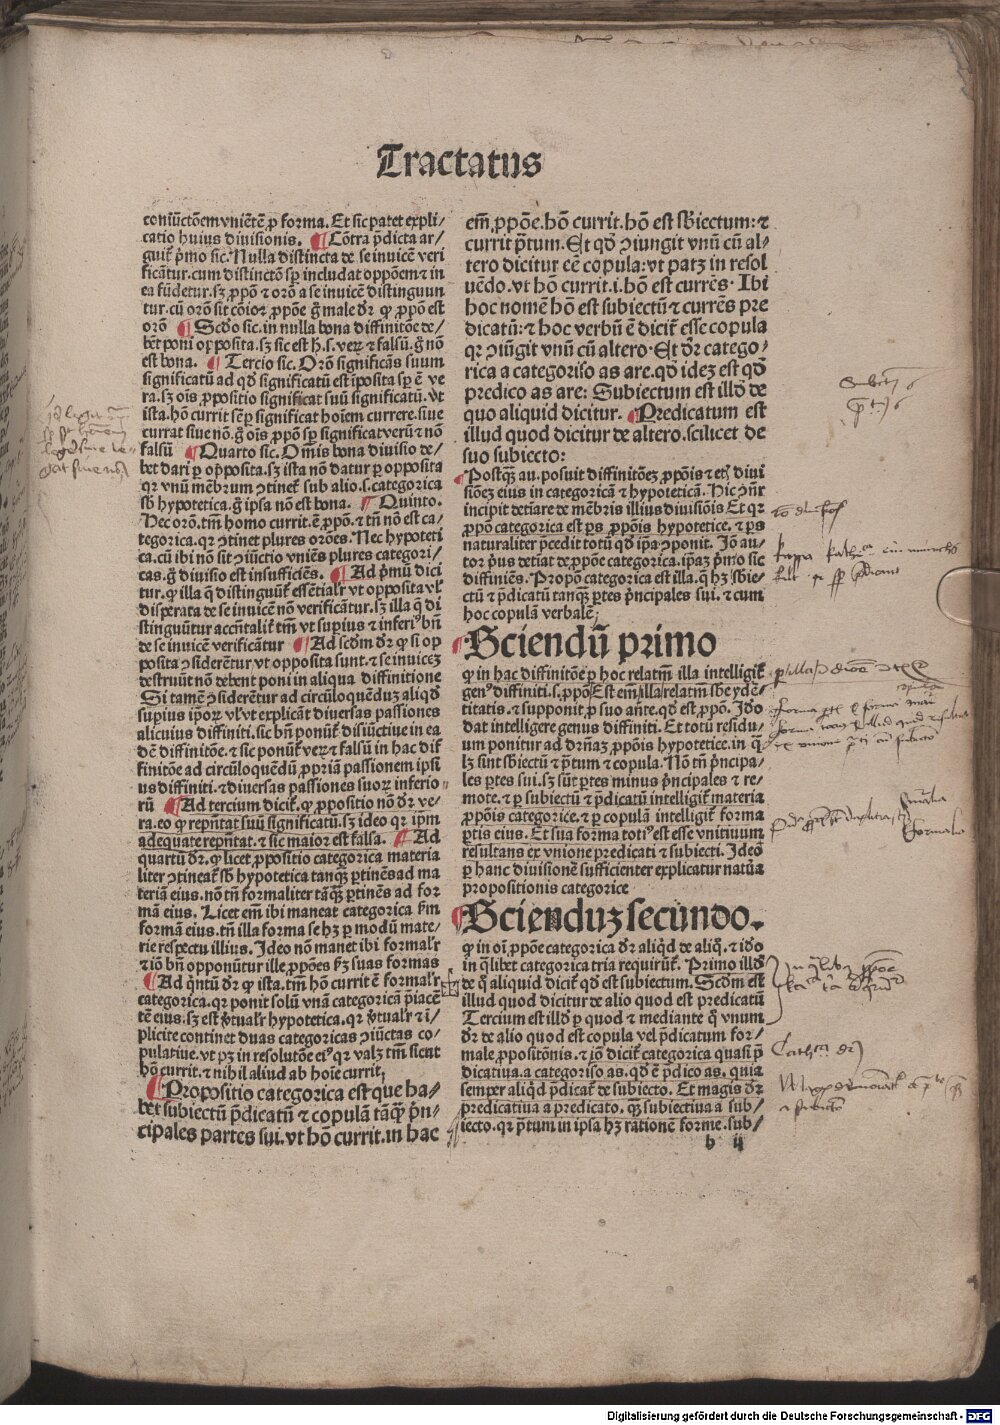 Tractatus
coniūctōem vniētē ꝑ forma. Et sic patet expli/
catio huius diuisionis. ¶ Cōtra p̄dicta ar/
guit̄ p̄mo sic. Nulla distincta de se inuicē veri
ficātur. cum distinctō sꝑ includat oppōem ⁊ in
ea fūdetur. sꝫ ꝓpō ⁊ orō a se inuicē distinguun
tur. cū orō sit cōior ꝓpōe g̊ male dr̄ ꝙ ꝓpō est
orō ¶ Scd̄o sic. in nulla bona diffinitōe de/
bēt poni opposita. sꝫ sic est h̄. s. veꝝ ⁊ falsū. g̊ nō
est bona. ¶ Tercio sic. Orō significās suum
significatū ad qd̄ significatū est īposita sꝑ ē ve
ra. sꝫ oīs ꝓpositio significat suū significatū. vt
ista. hō currit sēꝑ significat hoīem currere. siue
currat siue nō. g̊ oīs ꝓpō sꝑ significat verū ⁊ nō
falsū ¶ Quarto sic. Om̄is bona diuisio de/
bet dari ꝑ opposita. sꝫ ista nō datur ꝑ opposita
qꝛ vnū mēbrum ↄtinet̄ sub alio. s. categorica
sb̄ hypotetica. g̊ ipsa nō est bona. ¶ Quinto.
Hec orō. tm̄ homo currit. ē ꝓpō. ⁊ tn̄ nō est ca/
tegorica. qꝛ ↄtinet plures orōes. Nec hypoteti
ca. cū ibi nō sit ↄiūctio vniēs plures categori/
cas. g̊ diuisio est insufficiēs. ¶ Ad p̄mū dici
tur. ꝙ illa q̄ distinguūt̄ essētialr̄ vt opposita vl̄
disperata de se inuicē nō verificātur. sꝫ illa q̄ di
stinguūtur accn̄talit̄ tm̄ vt supius ⁊ inferiꝰ bn̄
de se inuicē verificātur ¶ Ad scd̄m dr̄ ꝙ si op
posita ↄsiderētur vt opposita sunt. ⁊ se inuicez
destruūt nō debent poni in aliqua diffinitione
Si tamē ↄsiderētur ad circūloquēduꝫ aliqd̄
supius ipoꝝ vl̄ vt explicāt diuersas passiones
alicuius diffiniti. sic bn̄ ponūt̄ disiūctiue in ea
dē diffinitōe. ⁊ sic ponūt̄ veꝝ ⁊ falsū in hac dif
finitōe ad circūloquēdū ꝓpriā passionem ipsi
us diffiniti. ⁊ diuersas passiones suoꝝ inferio
rū ¶ Ad tercium dicit̄. ꝙ ꝓpositio nō dr̄ ve/
ra. eo ꝙ repn̄tat suū significatū. sꝫ ideo qꝛ ipm
adequate repn̄tat. ⁊ sic maior est falsa. ¶ Ad
quartū dr̄. ꝙ licet ꝓpositio categorica materia
liter ↄtineat̄ sb̄ hypotetica tanqꝫ ꝑtinēs ad ma
teriā eius. nō tn̄ formaliter tāqꝫ ꝑtinēs ad for
mā eius. Licet em̄ ibi maneat categorica km̄
formā eius. tn̄ illa forma se hꝫ ꝑ modū mate/
rie respectu illius. Ideo nō manet ibi formalr̄
⁊ iō bn̄ opponūtur ille ꝓpōes kꝫ suas formas
¶ Ad qn̄tū dr̄ ꝙ ista. tm̄ hō currit ē formalr̄
categorica. qꝛ ponit solū vnā categoricā p̄iacē
tē eius. sꝫ est v̄tualr̄ hypotetica. qꝛ v̄tualr̄ ⁊ ī/
plicite continet duas categoricas ↄiūctas co/
pulatiue. vt pꝫ in resolutōe eiꝰ qꝛ valꝫ tm̄ sicut
hō currit. ⁊ nihil aliud ab hoīe currit.
¶ Propositio categorica est que ha/
bet subiectū p̄dicatū ⁊ copulā tāqꝫ p̄n/
cipales partes sui. vt hō currit. in hac
em̄ ꝓpōe. hō currit. hō est sb̄iectum: ⁊
currit p̄tum. Et qd̄ ↄiungit vnū cū al/
tero dicitur eē copula: vt patꝫ in resol
uēdo. vt hō currit. i. hō est currēs. Ibi
hoc nomē hō est subiectū ⁊ currēs pre
dicatū: ⁊ hoc verbū ē dicit̄ esse copula
qꝛ ↄiūgit vnū cū altero. Et dr̄ catego/
rica a categoriso as are. qd̄ ideꝫ est qd̄
predico as are: Subiectum est illd̄ de
quo aliquid dicitur. ¶ Predicatum est
illud quod dicitur de altero. scilicet de
suo subiecto:
¶ Postqꝫ au. posuit diffinitōeꝫ ꝓpōis ⁊ etꝫ diui
siōeꝫ eius in categoricā ⁊ hypoteticā. Hic ↄn̄r
incipit detiare de mēbris illius diuisiōis Et qꝛ
ꝓpō categorica est ꝑs ꝓpōis hypotetice. ⁊ ꝑs
naturaliter p̄cedit totū qd̄ ip̄a ↄponit. Iō au/
tor p̄us detiat de ꝓpōe categorica. ip̄aꝫ p̄mo sic
diffiniēs. Propō categorica est illa. q̄ hꝫ sb̄ie/
ctū ⁊ p̄dicatū tanqꝫ ꝑtes p̄ncipales sui. ⁊ cum
hoc copulā verbalē;
¶ Sciendū primo
ꝙ in hac diffinitōe ꝑ hoc relatm̄ illa intelligit̄
genꝰ diffiniti. s. ꝓpō Est em̄ illa relatm̄ sb̄e ydē/
titatis. ⁊ supponit ꝑ suo an̄te. qd̄ est ꝓpō. Ido
dat intelligere genus diffiniti. Et totū residu/
um ponitur ad dr̄naꝫ ꝓpōis hypotetice. in q̄
lꝫ sint sb̄iectū ⁊ p̄tum ⁊ copula. Nō tn̄ p̄ncipa/
les ꝑtes sui. sꝫ sūt ꝑtes minus p̄ncipales ⁊ re/
mote. ⁊ ꝑ subiectū ⁊ p̄dicatū intelligit̄ materia
ꝓpōis categorice. ⁊ ꝑ copulā intelligit̄ forma
ꝑtis eius. Et sua forma totiꝰ est esse vnitiuum
resultans ex vnione predicati ⁊ subiecti. Ideo
ꝑ hanc diuisionē sufficienter explicatur natūa
propositionis categorice
¶ Scienduꝫ secundo.
ꝙ in oī ꝓpōe categorica dr̄ aliqd̄ de aliq̊. ⁊ ido
in q̄libet categorica tria requirūt̄. Primo illd̄
de q̊ aliquid dicit̄ qd̄ est subiectum. Scd̄m est
illud quod dicitur de alio quod est predicatū
Tercium est illd̄ ꝑ quod ⁊ mediante q̊ vnum
dr̄ de alio quod est copula vel p̄dicatum for/
male ꝓpositōnis. ⁊ iō dicit̄ categorica quasi p̄
dicatiua. a categoriso as. qd̄ ē p̄dico as. quia
semper aliqd̄ p̄dicat̄ de subiecto. Et magis dr̄
predicatiua a predicato. qꝫ subiectiua a sub/
iecto. qꝛ p̄tum in ipsa hꝫ rationē forme. sub/
b ij
Digitalisierung gefördert durch die Deutsche Forschungsgemeinschaft - DFG